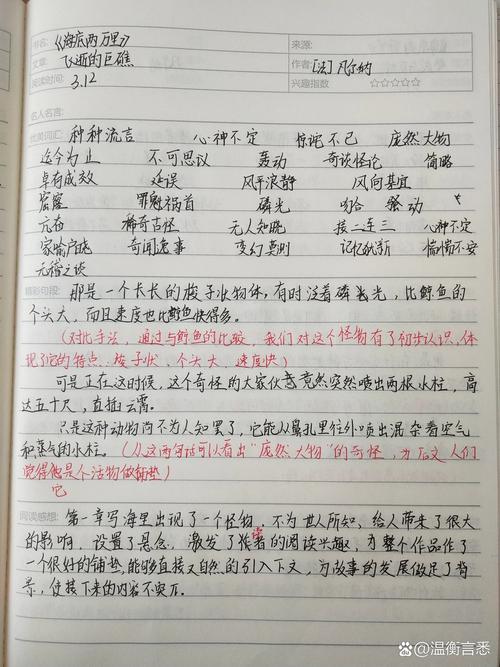 书名:《海底两万里》 来源:
文章: 飞逝的巨礁 作者:[法]凡尔纳
阅读时间: 3.12 兴趣指数 ☆☆☆☆☆
名人名言:
优美词汇: 种种流言 心神不定 惊诧不已 庞然大物
迄今为止 不可思议 轰动 奇谈怪论 简略
卓有成效 延误 风平浪静 风向甚宜
窟窿 罪魁祸首 磷光 吻合 骚动
亢奋 稀奇古怪 无人知晓 接二连三 心神不定
家喻户晓 奇闻逸事 变幻莫测 记忆犹新 惴惴不安
无稽之谈
精彩句段: 那是一个长长的梭子状物体,有时泛着磷光,比鲸鱼的
个头大,而且速度也比鲸鱼快得多。
(对比手法,通过与鲸鱼的比较,我们对这个怪物有了初步认识,体
现了它的特点:梭子状,个头大,速度快)
可是正在这时候,这个奇怪的大家伙竟然突然喷出两根水柱,高
达五十尺,直插云霄。
只是这种动物尚不为人知罢了,它能从鼻孔里往外喷出混杂着空气
和蒸气的水柱。(从这两句话可以看出"庞然大物"的奇怪,为后文人们
觉得他是个活物做铺垫)
它
阅读感想: 第一章写海里出现了一个怪物,不为世人所知,给人带来了很大
的影响,设置了悬念,激发了读者的阅读兴趣,为整个作品作了
一个很好的铺垫,能够直接又自然的引入下文,为故事的发展做足了背
景,使接下来的内容不突兀。
@温衡言悉